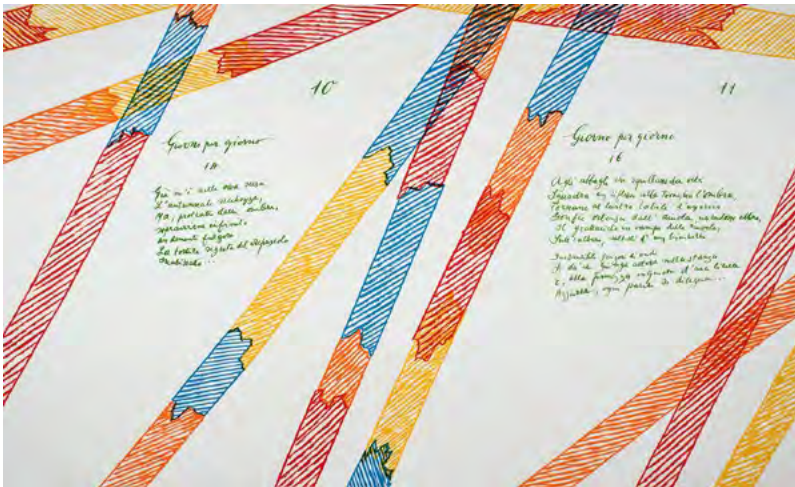 10
11
Giorno per giorno
14
Già m'è nelle ossa scesa
L'autunnale secchezza,
Ma, protratto dalle ombre,
Sopravviene infinito
Un demente fulgore:
La tortura segreta del crepuscolo
Inabissato...
Giorno per giorno
16
Agli abbagli che squillano dai vetri
Squadra un riflesso alla tovaglia l'ombra,
Tornano al lustro labile d'un orcio
Gonfie ortensie dall'aiuola, un rondone ebbro,
Il grattacielo in vampe delle nuvole,
Sull'albero, saltelli d'un bimbetto...
fragore di onde
Si dà che giunga allora nella stanza
E, alla fermezza inquieta d'una linea
Azzurra, ogni parete si dilegua...